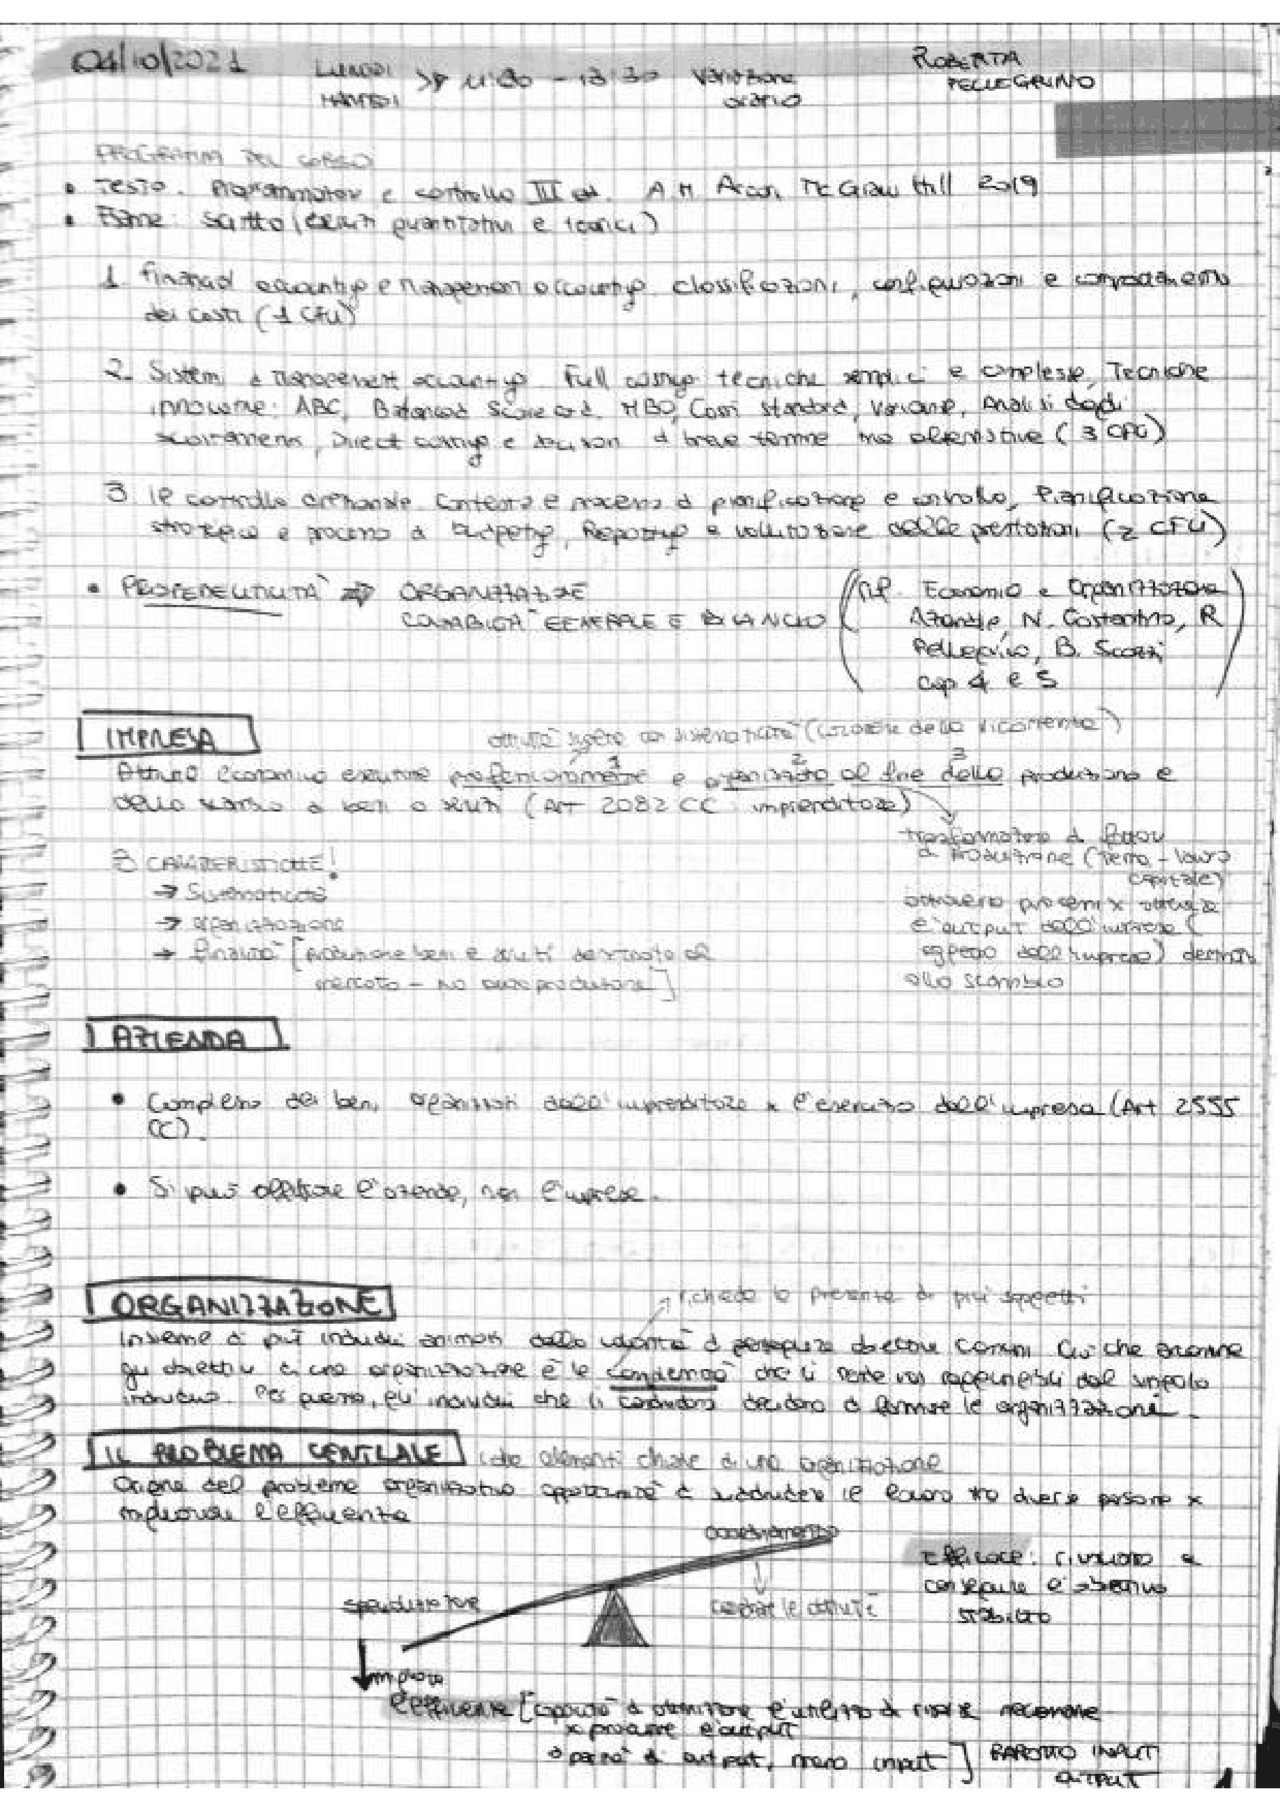 04/10/2021
LUNEDI
MARTEDI
11:30 - 13:30
Variazione
orario
ROBERTA
PELLEGRINO
PROGRAMMA DEL CORSO
• Testo. Programmazione e controllo III ed. A.M. Arcari McGraw Hill 2019
• Esame: scritto (esercizi quantitativi e teorici)
1 Financial accounting e management accounting. classificazioni, configurazioni e comportamento
dei costi (1 CFU)
2. Sistemi di management accounting. Full costing: tecniche semplici e complesse, Tecniche
innovative: ABC, Balanced Scorecard, MBO, Costi standard, Varianze, Analisi degli
scostamenti, Direct costing e decisioni di breve termine tra alternative (3 CFU)
3 Il controllo direzionale. Contesto e processo di pianificazione e controllo, Pianificazione
strategica e processo di budgeting, Reporting e valutazione delle prestazioni (2 CFU)
• PROPEDEUTICITÀ ⇒ ORGANIZZAZIONE
CONTABILITÀ GENERALE E BILANCIO
(rif. Economia e Organizzazione
Aziendale, N. Costantino, R
Pellegrino, B. Scozzi
Cap 4 e 5)
IMPRESA
attività svolta con sistematicità (carattere della ricorrenza)
1 2 3
Attività economica esercitata professionalmente e organizzata al fine della produzione e
dello scambio di beni o servizi (Art 2082 CC imprenditore)
trasformazione di fattori
di produzione (terra - lavoro
capitale)
attraverso processi x ottenere
l'output dell'impresa (
oggetto dell'impresa) destinato
allo scambio
3 CARATTERISTICHE!
→ Sistematicità
→ organizzazione
→ finalità [produzione beni e servizi destinata al
mercato - no autoproduzione]
AZIENDA
• Complesso dei beni organizzati dall'imprenditore x l'esercizio dell'impresa (Art 2555
CC).
• Si può affittare l'azienda, non l'impresa.
ORGANIZZAZIONE
→ richiede la presenza di più soggetti
Insieme di più individui animati dalla volontà di perseguire obiettivi comuni. Ciò che accomuna
gli obiettivi di una organizzazione è la condivisa che li rende non raggiungibili dal singolo
individuo. Per questo, gli individui che li condividono decidono di formare le organizzazioni.
IL PROBLEMA CENTRALE
(due elementi chiave di una organizzazione
Origine del problema organizzativo: opportunità di suddividere il lavoro tra diverse persone x
migliorare l'efficienza
coordinamento
specializzazione
Efficace: riuscito a
conseguire l'obiettivo
stabilito
migliora
l'efficienza [capacità di ottimizzare l'utilizzo di risorse necessarie
x produrre l'output
a parità di output, meno input] RAPPORTO INPUT
OUTPUT
1